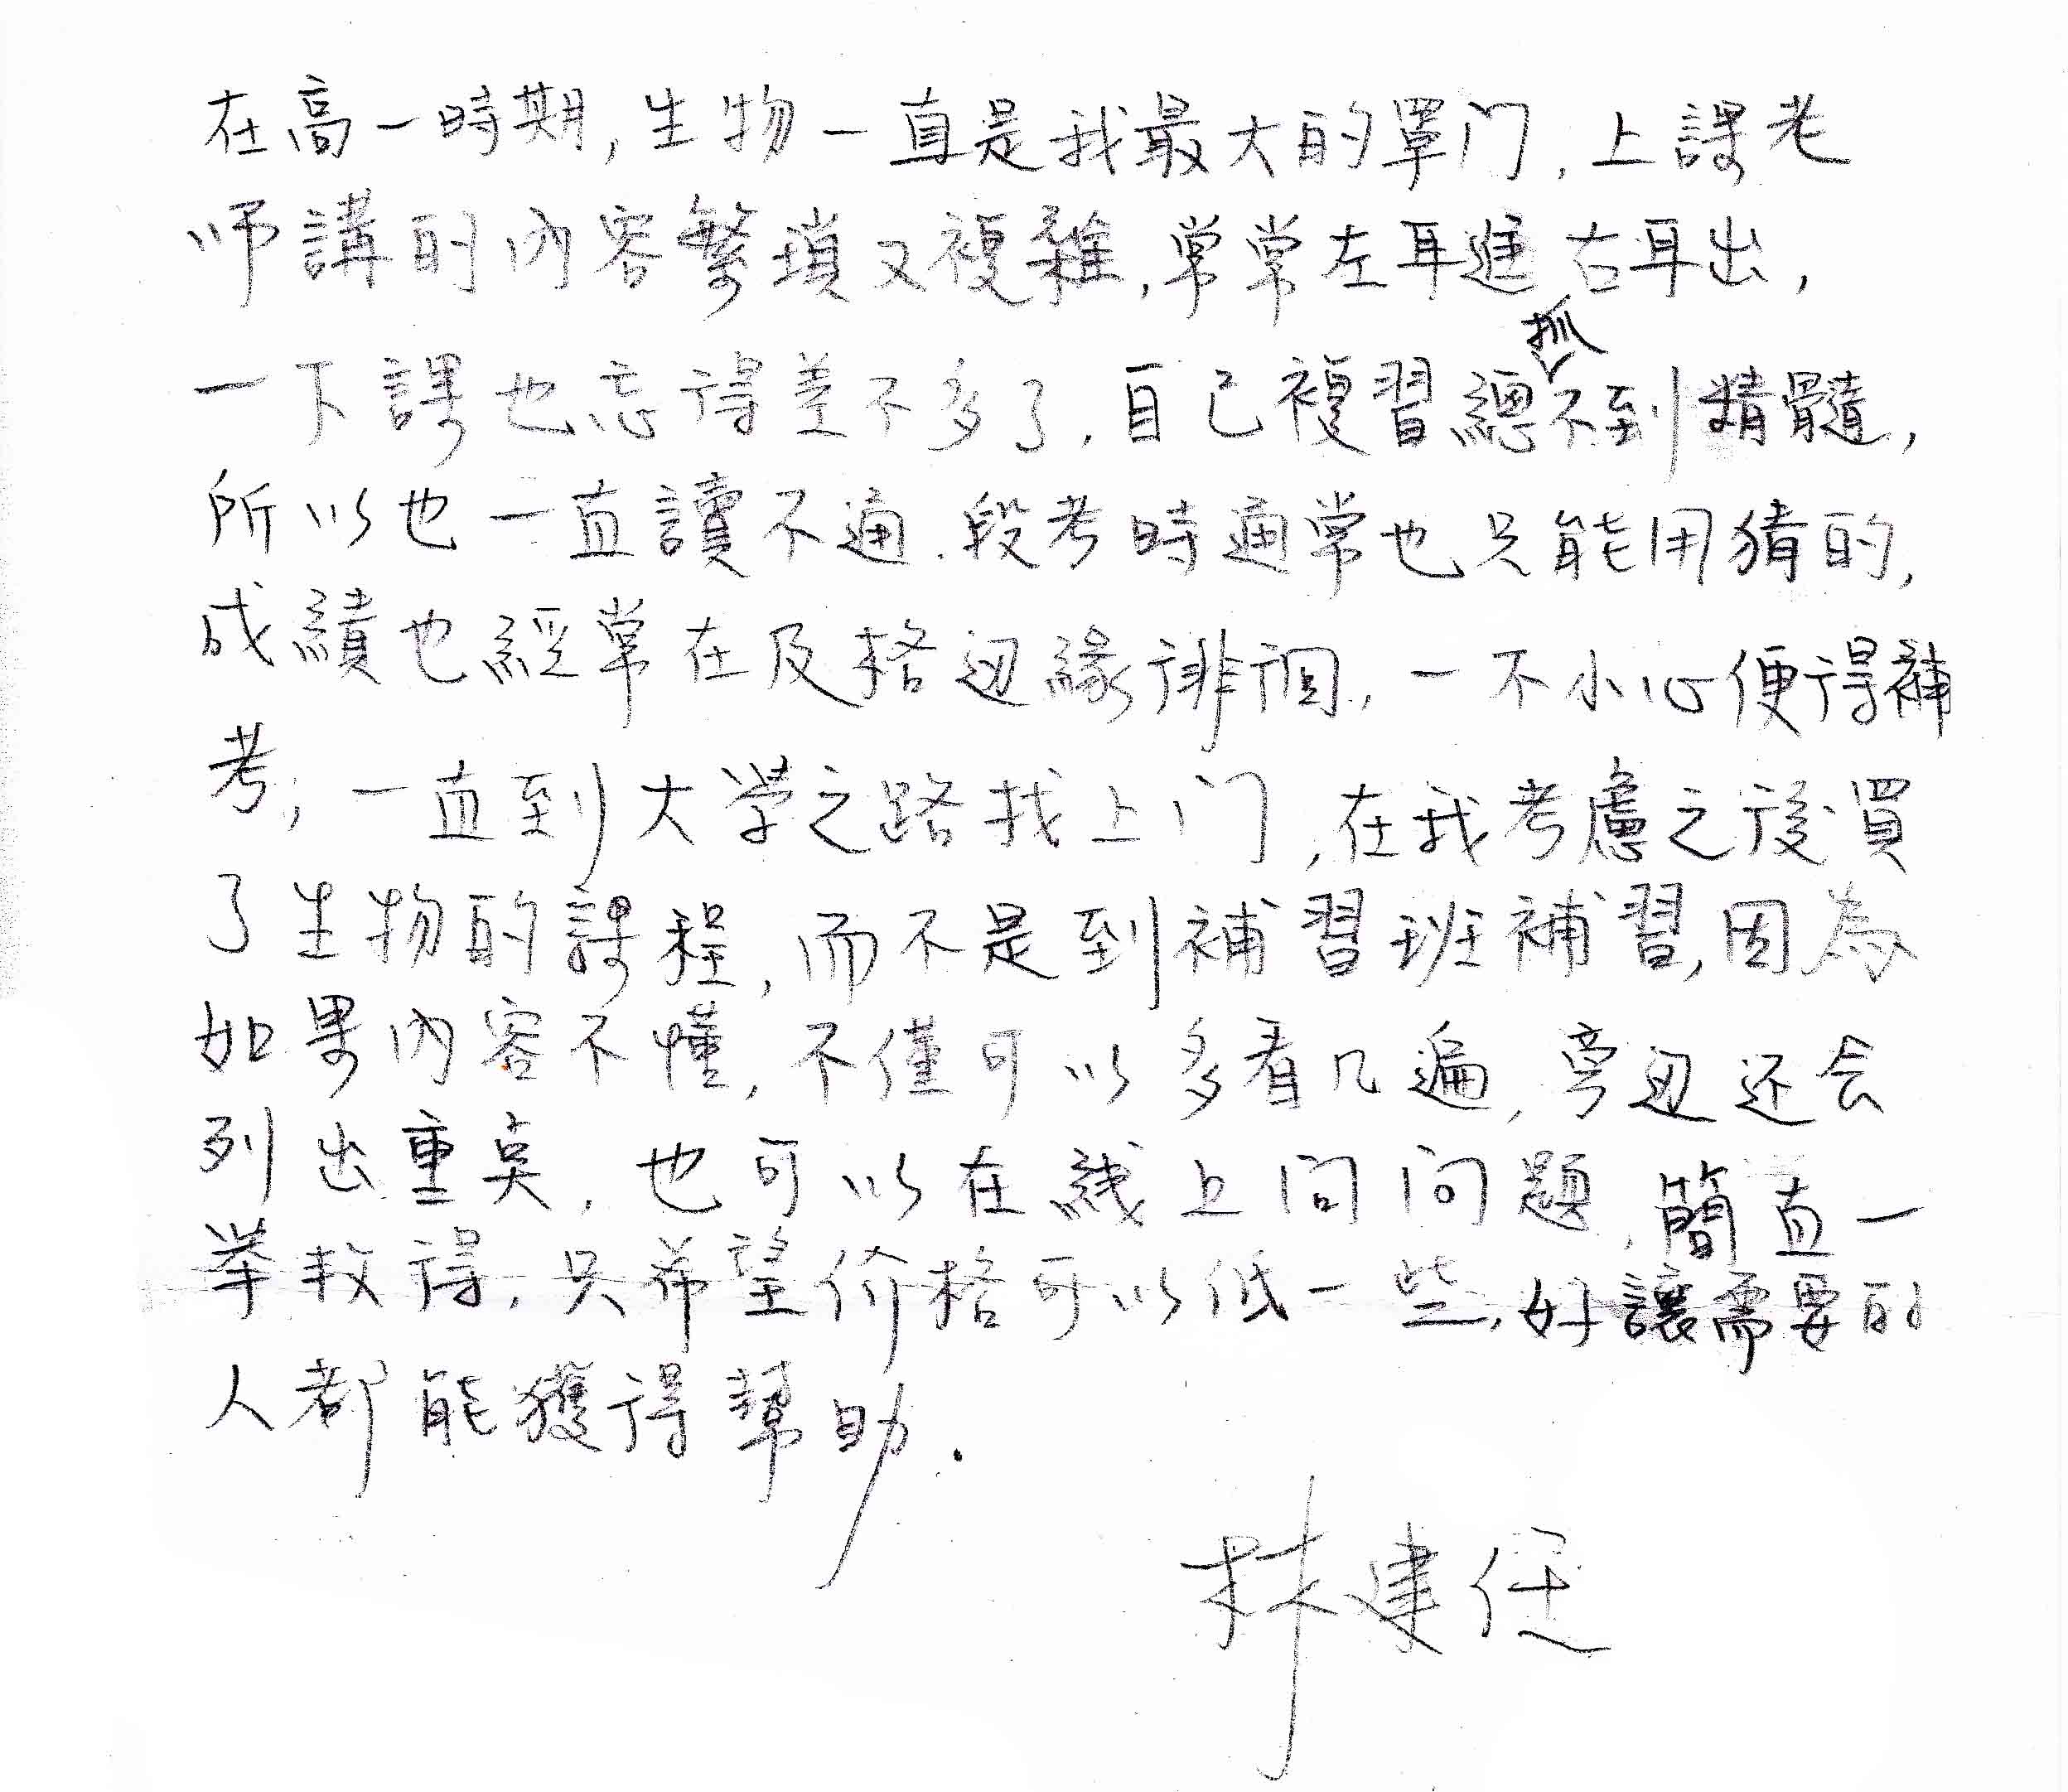 在高一時期,生物一直是我最大的罩门,上課老
师講的內容繁瑣又複雜,常常左耳進右耳出,
一下課也忘得差不多了,自己複習總抓不到精髓,
所以也一直讀不通.段考時通常也只能用猜的,
成績也經常在及格边緣徘徊,一不小心便得補
考,一直到大学之路找上门,在我考慮之後買
了生物的課程,而不是到補習班補習,因為
如果內容不懂,不僅可以多看几遍,旁边还会
列出重奌,也可以在綫上问问題,簡直一
举数得,只希望价格可以低一些,好讓需要的
人都能獲得幫助.
林建任